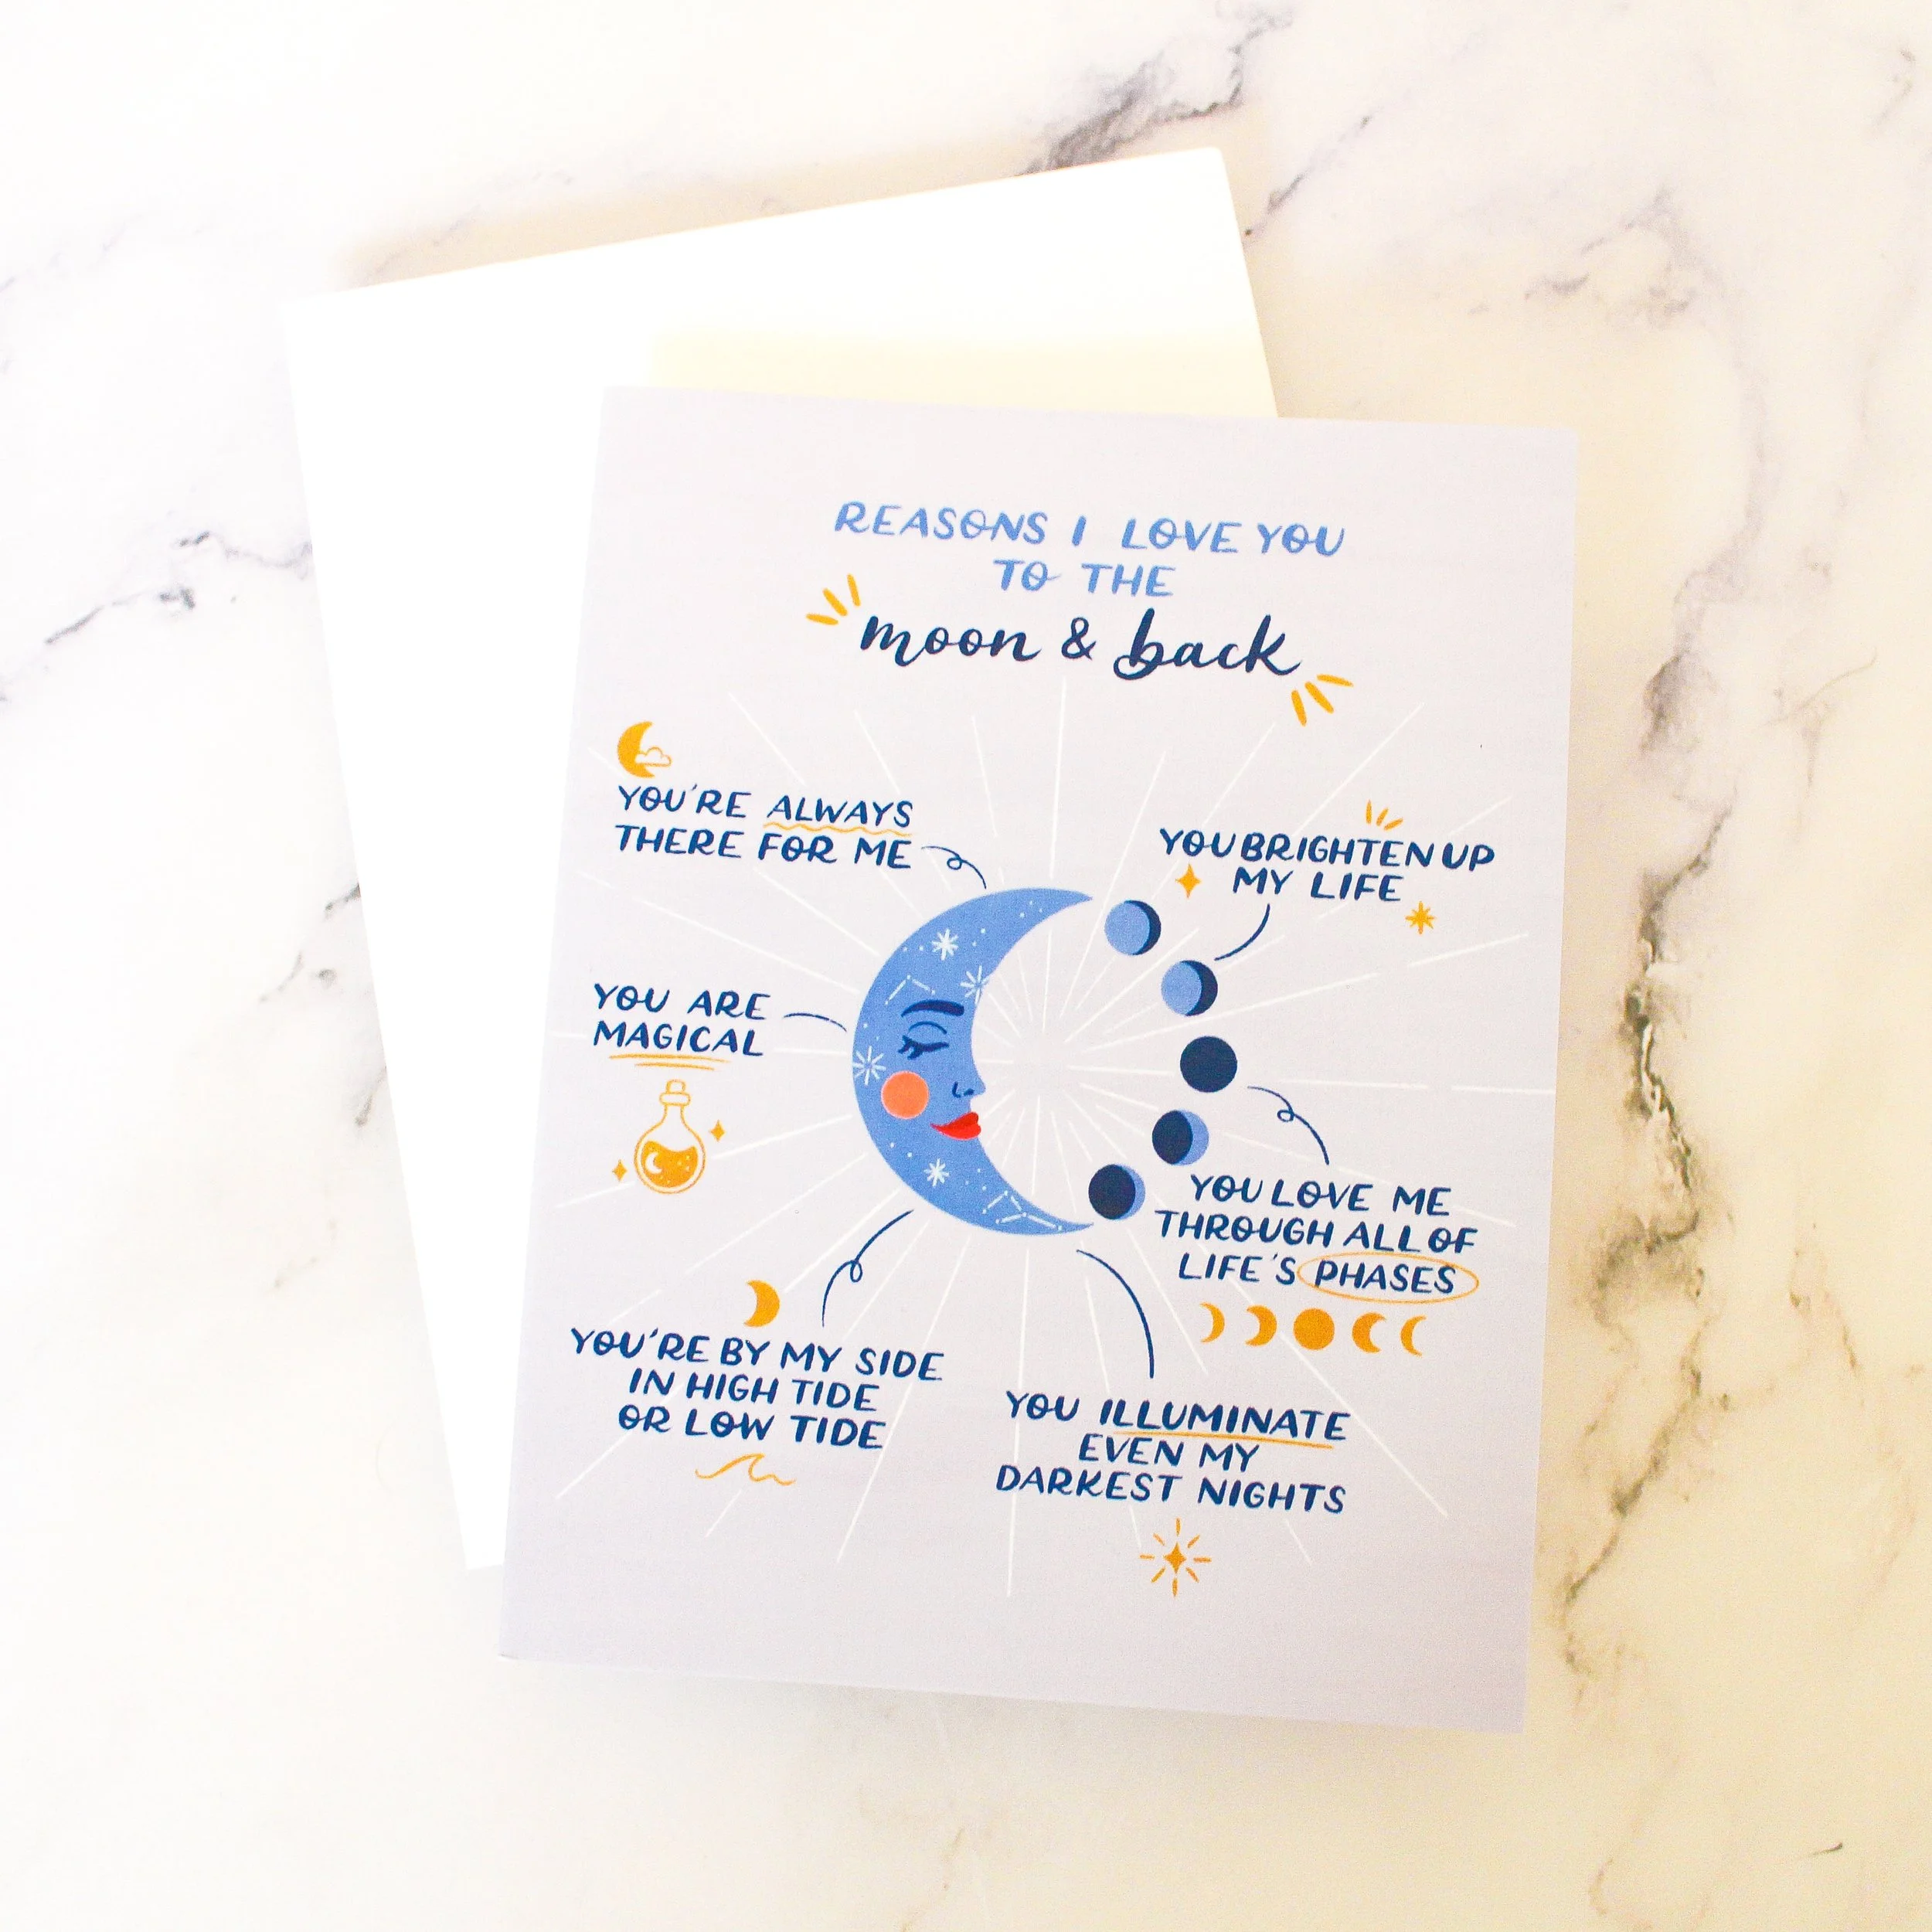 REASONS I LOVE YOU
TO THE
moon & back
YOU'RE ALWAYS
THERE FOR ME
YOU BRIGHTEN UP
MY LIFE
YOU ARE
MAGICAL
YOU LOVE ME
THROUGH ALL OF
LIFE'S PHASES
YOU'RE BY MY SIDE
IN HIGH TIDE
OR LOW TIDE
YOU ILLUMINATE
EVEN MY
DARKEST NIGHTS